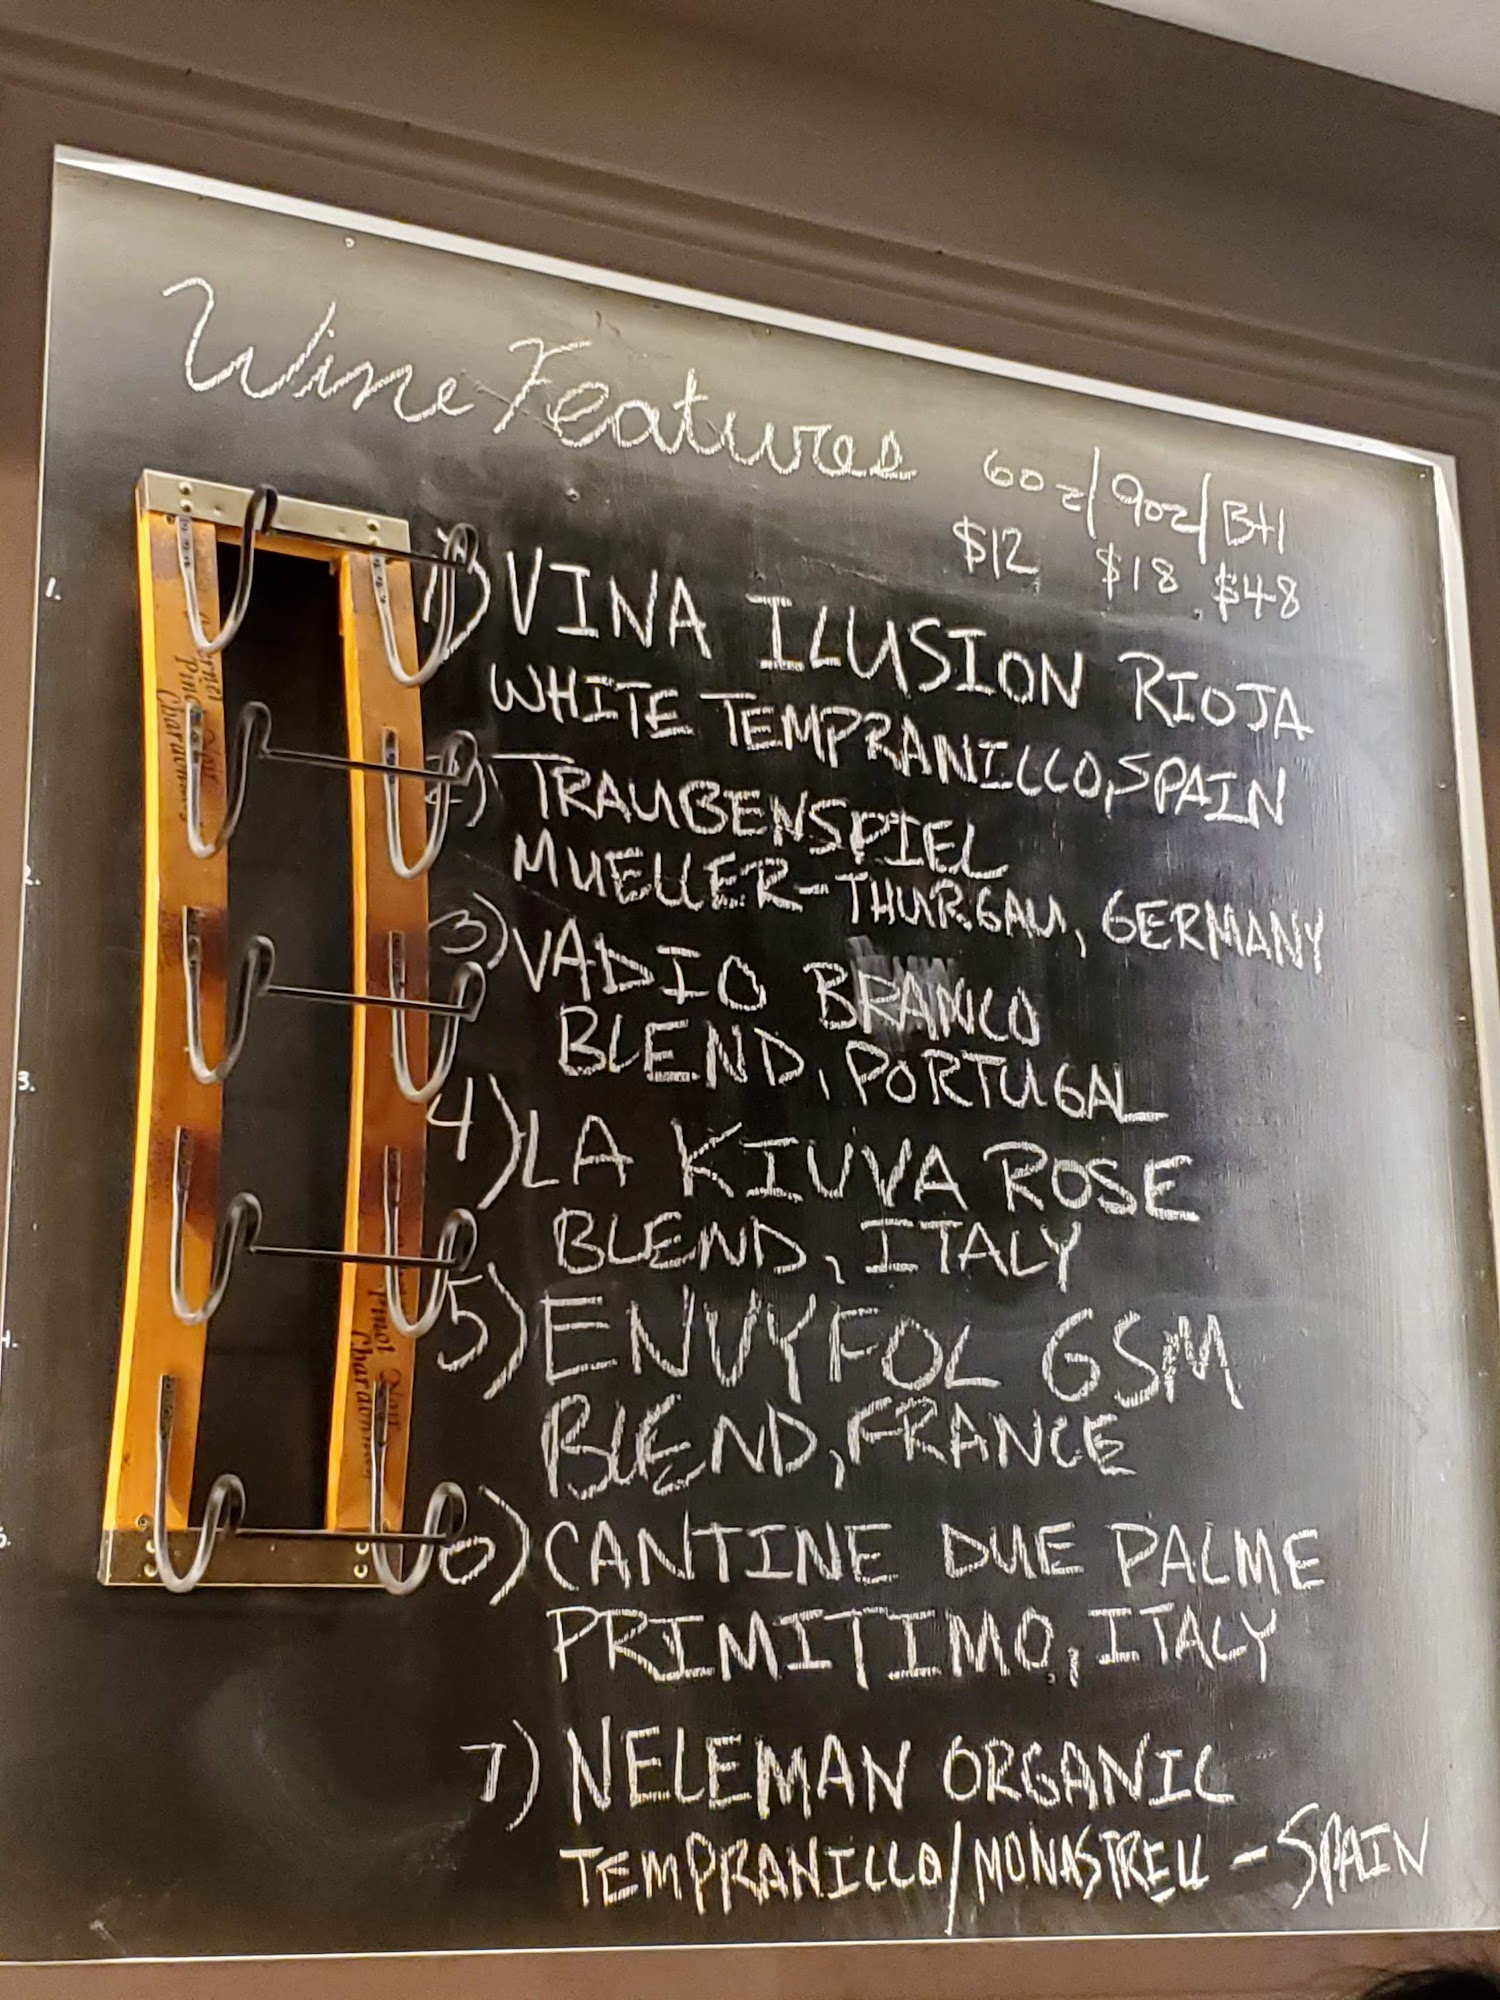 Wine Features
6oz/9oz/Btl
$12 $18 $48
1) VINA ILUSION RIOJA
WHITE TEMPRANILLO, SPAIN
2) TRAUBENSPIEL
MUELLER-THURGAU, GERMANY
3) VADIO BRANCO
BLEND, PORTUGAL
4) LA KIUVA ROSE
BLEND, ITALY
5) ENVYFOL GSM
BLEND, FRANCE
6) CANTINE DUE PALME
PRIMITIMO, ITALY
7) NELEMAN ORGANIC
TEMPRANILLO/MONASTRELL - SPAIN
1.
2.
3.
4.
5.
Pinot Noir
Chardonnay